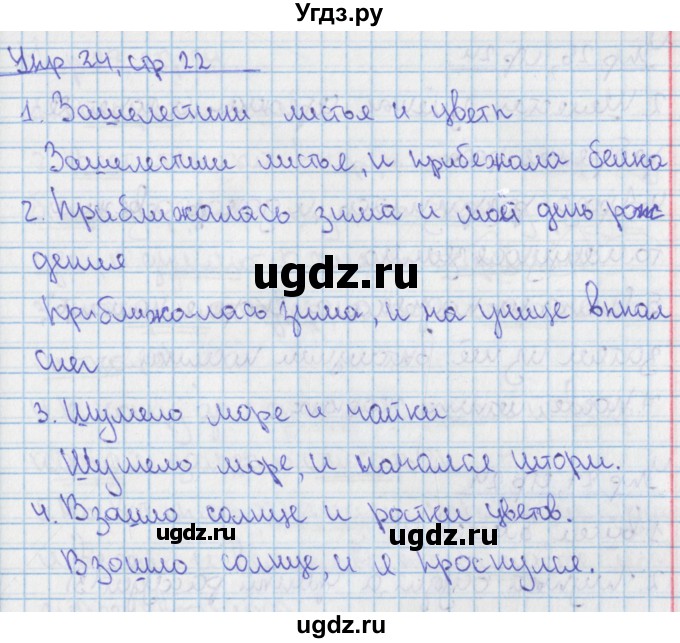 Угдз.ру
Упр 24, стр 22
1. Зашелестили листья и цветы
Зашелестили листья, и прибежала белка
2. Приближалась зима и мой день рож
дения
ugdz.ru
Приближалась зима, и на улице выпал
снег
3. Шумело море и чайки
Шумело море, и начался шторм.
4. Взашло солнце и ростки цветов.
ugdz.ru ugdz.ru
Взошло солнце, и я проснулся.
ugdz.ru